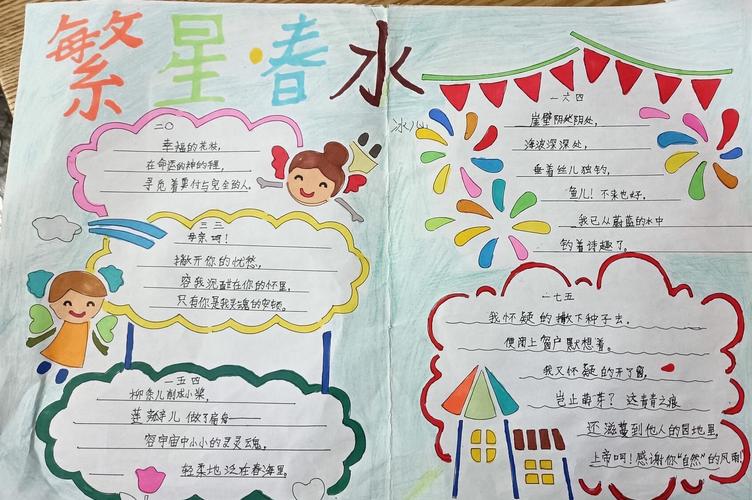 繁星·春水
冰心
二〇
幸福的花枝,
在命运的神的手里,
寻觅着要付与完全的人。
三三
母亲呵!
撇开你的忧愁,
容我沉酣在你的怀里,
只有你是我灵魂的安顿。
一五四
柳条儿削成小桨,
莲瓣儿做了扁舟——
容宇宙中小小的灵魂,
轻柔地泛在春海里
一六四
崖壁阴处,
海波深深处,
垂着丝儿独钓,
鱼儿!不来也好,
我已从蔚蓝的水中
钓着诗趣了。
一七五
我怀疑的撒下种子去,
便闭上窗户默想着。
我又怀疑的开了窗,
岂止萌芽?这青青之痕
还滋蔓到他人的园地里,
上帝呵!感谢你“自然”的风雨